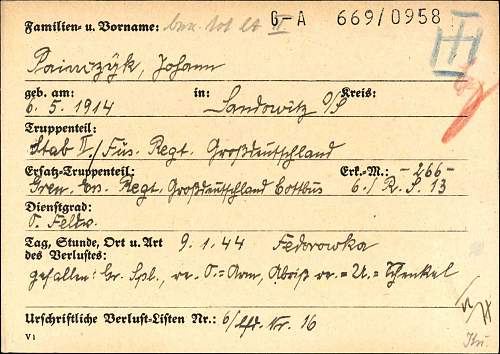 G-A 669/0958
Familien- u. Vorname: ber. tot lt II
Painczyk, Johann
geb. am: in: Kreis:
6. 5. 1914 Sandowitz O/S
Truppenteil:
Stab II./Füs. Regt. Großdeutschland
Ersatz-Truppenteil: Erk.-M.: -266-
Gren. Ers. Regt. Großdeutschland Cottbus 6./R. S. 13
Dienstgrad:
O. Feldw.
Tag, Stunde, Ort u. Art 9. 1. 44 Fedorowka
des Verlustes:
gefallen: Gr. Spl., re. O.=Arm, Abriß re.=U.=Schenkel
Urschriftliche Verlust-Listen Nr.: 6/lfd. Nr. 16
V1